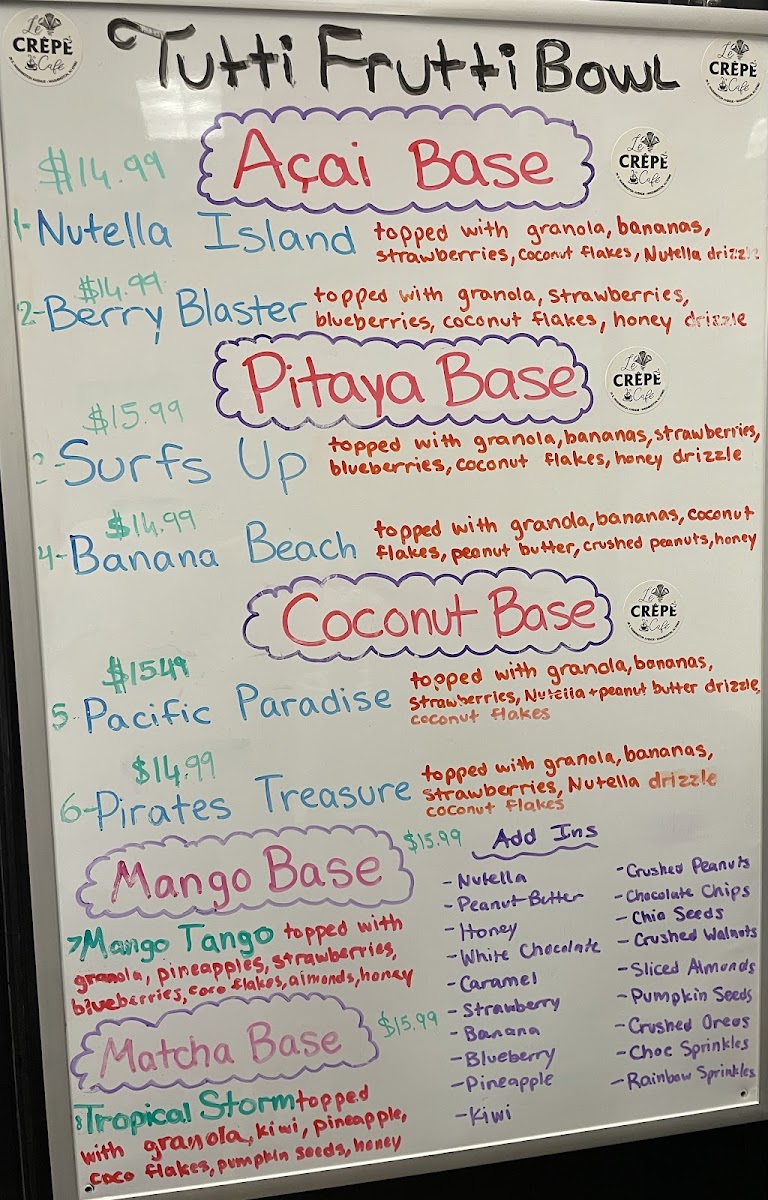 Le CRÊPE Café
Tutti Frutti Bowl
Le CRÊPE Café
Açai Base
Le CRÊPE Café
$14.99
1-Nutella Island topped with granola, bananas,
strawberries, coconut flakes, Nutella drizzle
$14.99
2-Berry Blaster topped with granola, strawberries,
blueberries, coconut flakes, honey drizzle
Pitaya Base
Le CRÊPE Café
$15.99
3-Surfs Up topped with granola, bananas, strawberries,
blueberries, coconut flakes, honey drizzle
$14.99
4-Banana Beach topped with granola, bananas, coconut
flakes, peanut butter, crushed peanuts, honey
Coconut Base
Le CRÊPE Café
$15.49
5-Pacific Paradise topped with granola, bananas,
strawberries, Nutella + peanut butter drizzle,
coconut flakes
$14.99
6-Pirates Treasure topped with granola, bananas,
strawberries, Nutella drizzle
coconut flakes
Mango Base
$15.99
7-Mango Tango topped with
granola, pineapples, strawberries,
blueberries, coco flakes, almonds, honey
Matcha Base
$15.99
8-Tropical Storm topped
with granola, kiwi, pineapple,
coco flakes, pumpkin seeds, honey
Add Ins
- Nutella
- Peanut Butter
- Honey
- White Chocolate
- Caramel
- Strawberry
- Banana
- Blueberry
- Pineapple
- Kiwi
- Crushed Peanuts
- Chocolate Chips
- Chia Seeds
- Crushed Walnuts
- Sliced Almonds
- Pumpkin Seeds
- Crushed Oreos
- Choc Sprinkles
- Rainbow Sprinkles